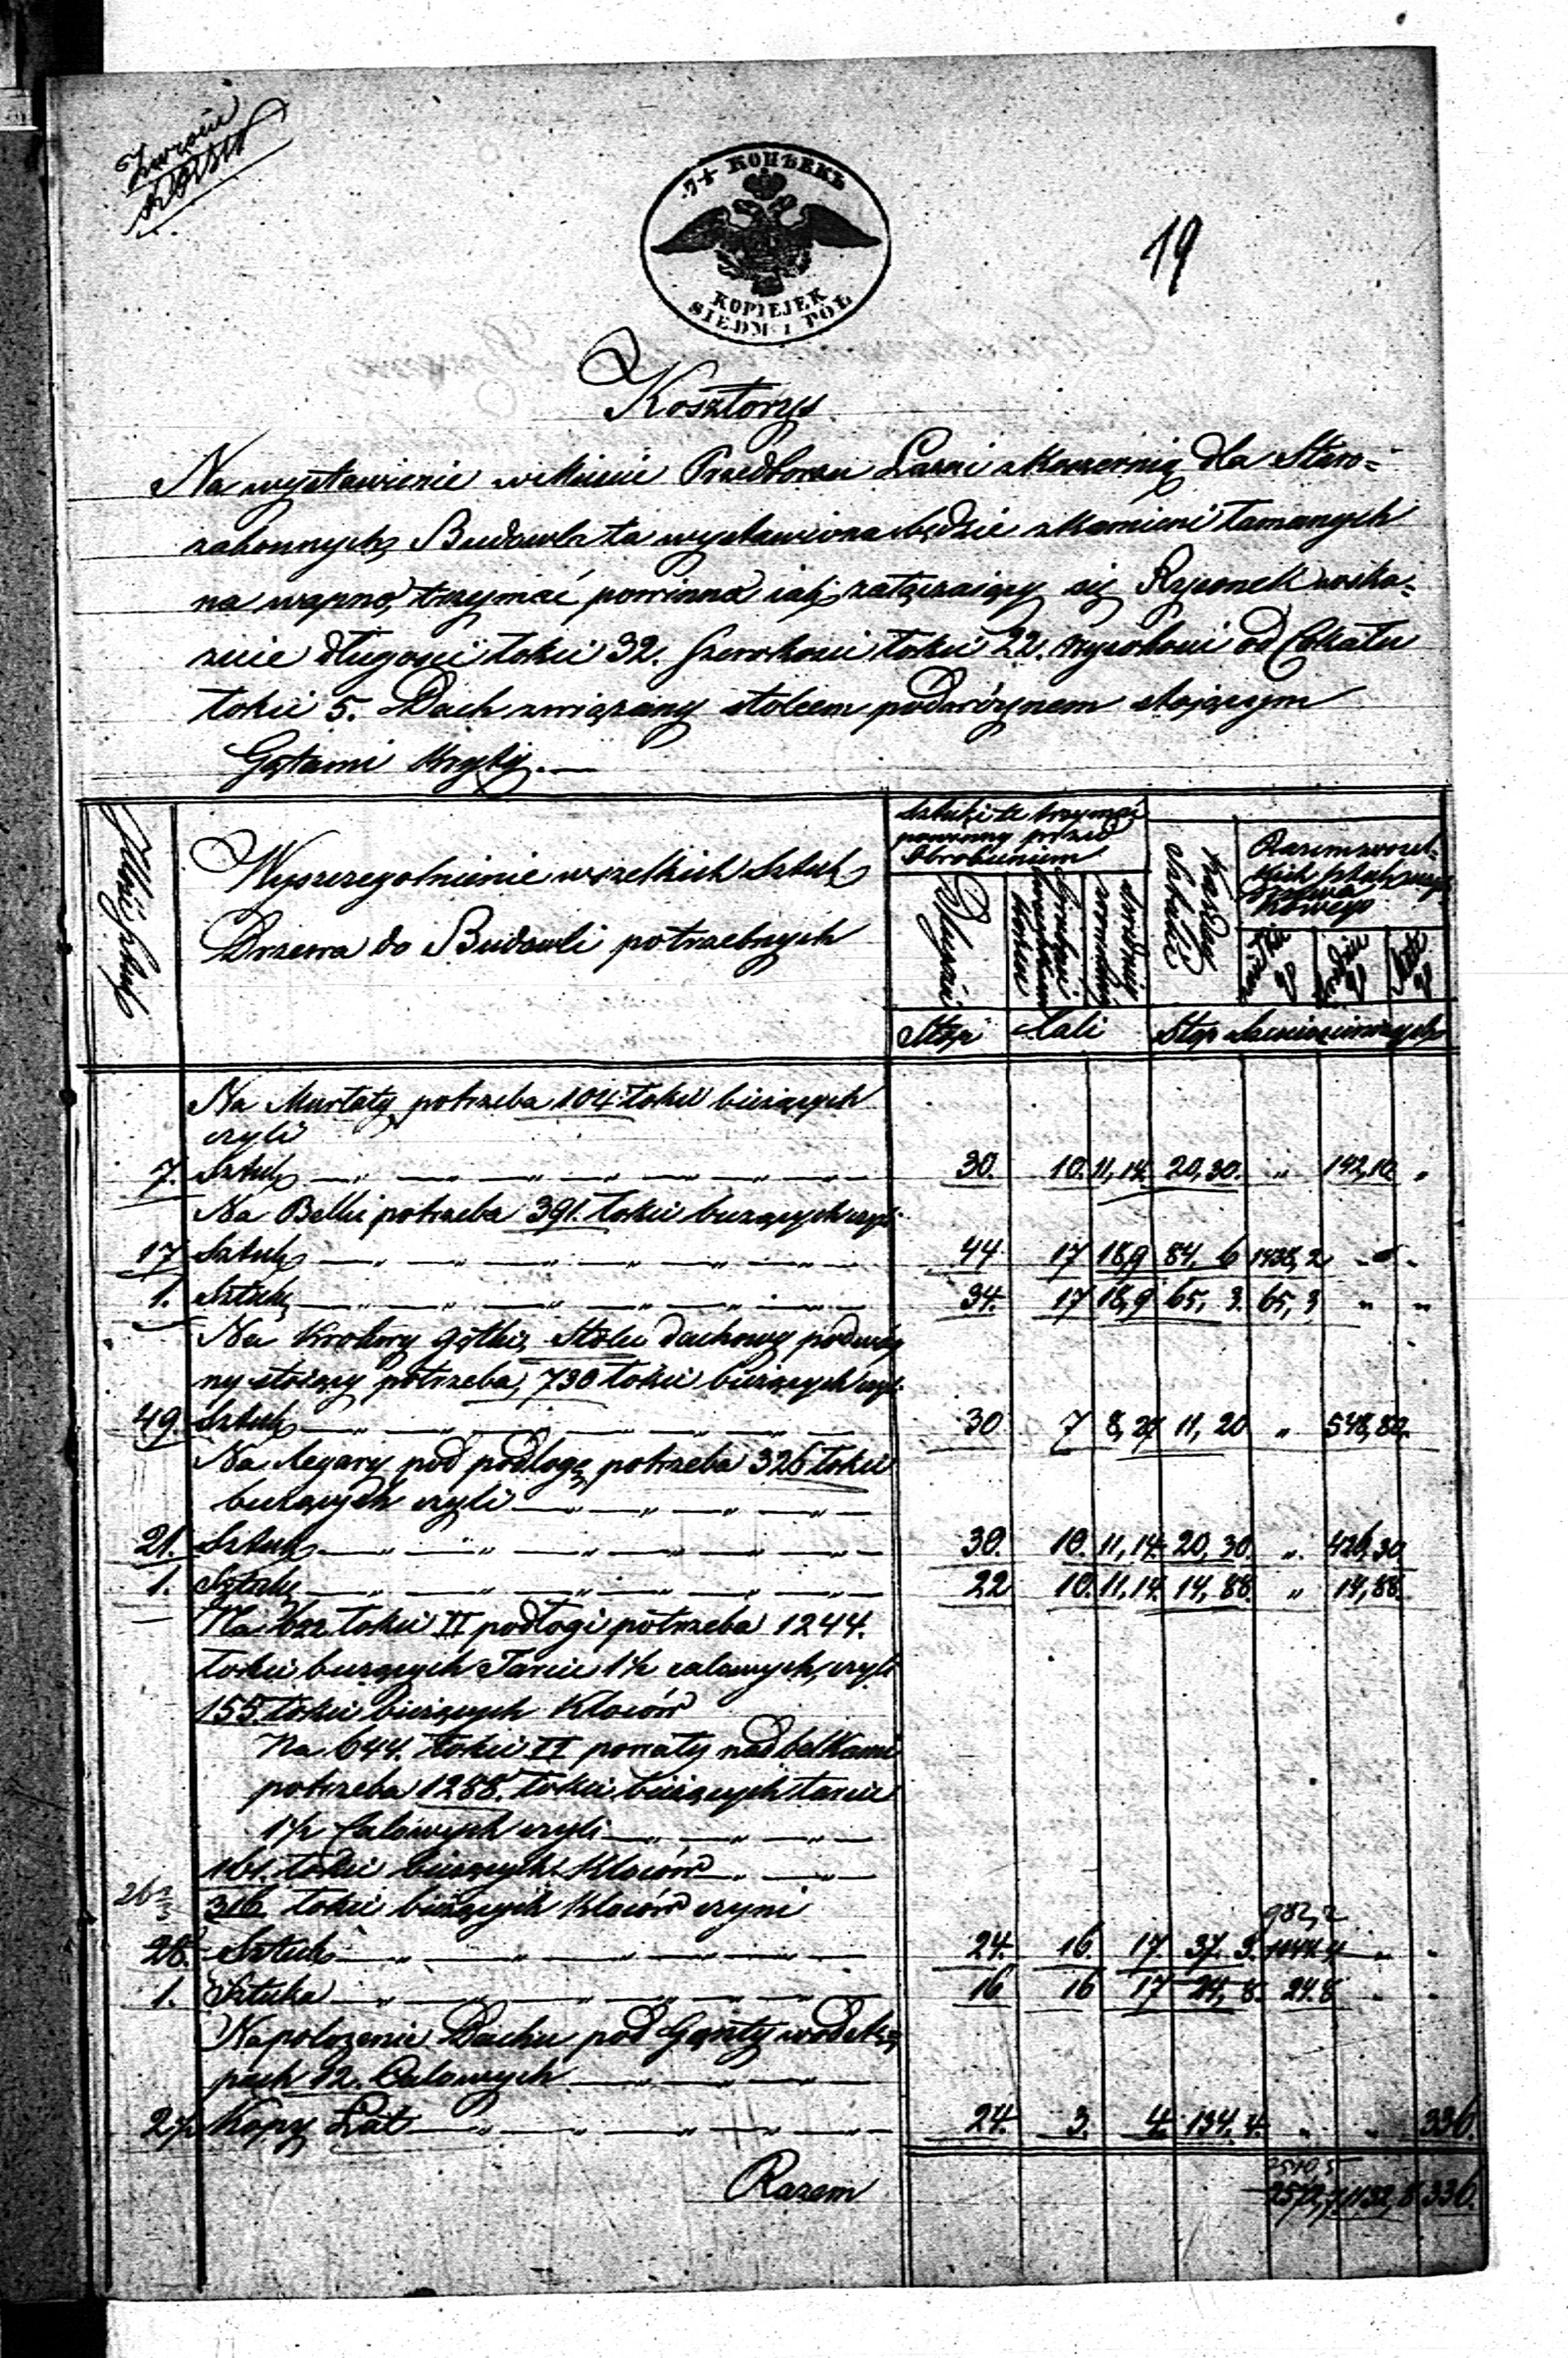 7½ КОПѢЕКЪ
KOPIEJEK
SIEDM I PÓŁ
19
Kosztorys
Na wystawienie w Mieście Przedborzu Łazni z Koszernią dla Staro=
zakonnych, Budowla ta wystawiona będzie z Kamieni łamanych
na wapno, trzymać powinna iak załączaiący się Rysonek wska=
zuie długości łokci 32. Szerokości łokci 22. wysokości od Cokułu
łokci 5. Dach związany stolcem podwóynem stojącym
Gątami Kryty.—
Ilość Sztuk
Wyszczegolnienie wszelkich Sztuk
Drzewa do Budowli potrzebnych
Sztuki te trzymać
powinny przed
Obrobieniem
Długości
w cienkim
Końcu
Każdey
Sztuki
Razem wszel=
kich Sztuk
Stóp
Cali
Stop Sześciennych
Na Murłaty potrzeba 104. łokci bieżących
czyli
7. Sztuk 30. 10. 11,14. 20,30. „ 142,10. „
Na Belki potrzeba 391. łokci bieżących czyli
17 Sztuk 44 17 18,9 84. 6 1438,2 „ „
1. Sztukę 34. 17 18,9 65, 3. 65,3 „ „
Na Krokwy Jętki, Stolec dachowy podwóy
ny stoiący potrzeba, 730 łokci bieżących czyli
49. Sztuk 30 7 8,27 11,20 „ 548,80.
Na legary pod podłogę potrzeba 326 łokci
bieżących czyli
21. Sztuk 30. 10. 11,14. 20,30. „ 426,30
1. Sztukę 22 10. 11,14. 14,88. „ 14,88.
Na 622 łokci II podłogi potrzeba 1244.
łokci bieżących Tarcic 1½ calowych, czyli
155. łokci bieżących Klocków
Na 644. łokci II powały nad belkami
potrzeba 1288. łokci bieżących tarcic
1½ Calowych czyli
161. łokci bieżących Klocków
26⅔ 316 łokci bieżących Klocków czyni
982,2
28. Sztuk 24. 16. 17 37. 3. 1044.4 „ „
1. Sztuka 16 16 17 24, 8. 24.8 „ „
Na połozenie Dachu pod Gąnty w odstę=
pach 12. Calowych
2½ Kopy Łat 24. 3. 4. 134.4. „ „ 336.
2510,5
Razem 2572,7 1132,8 336.